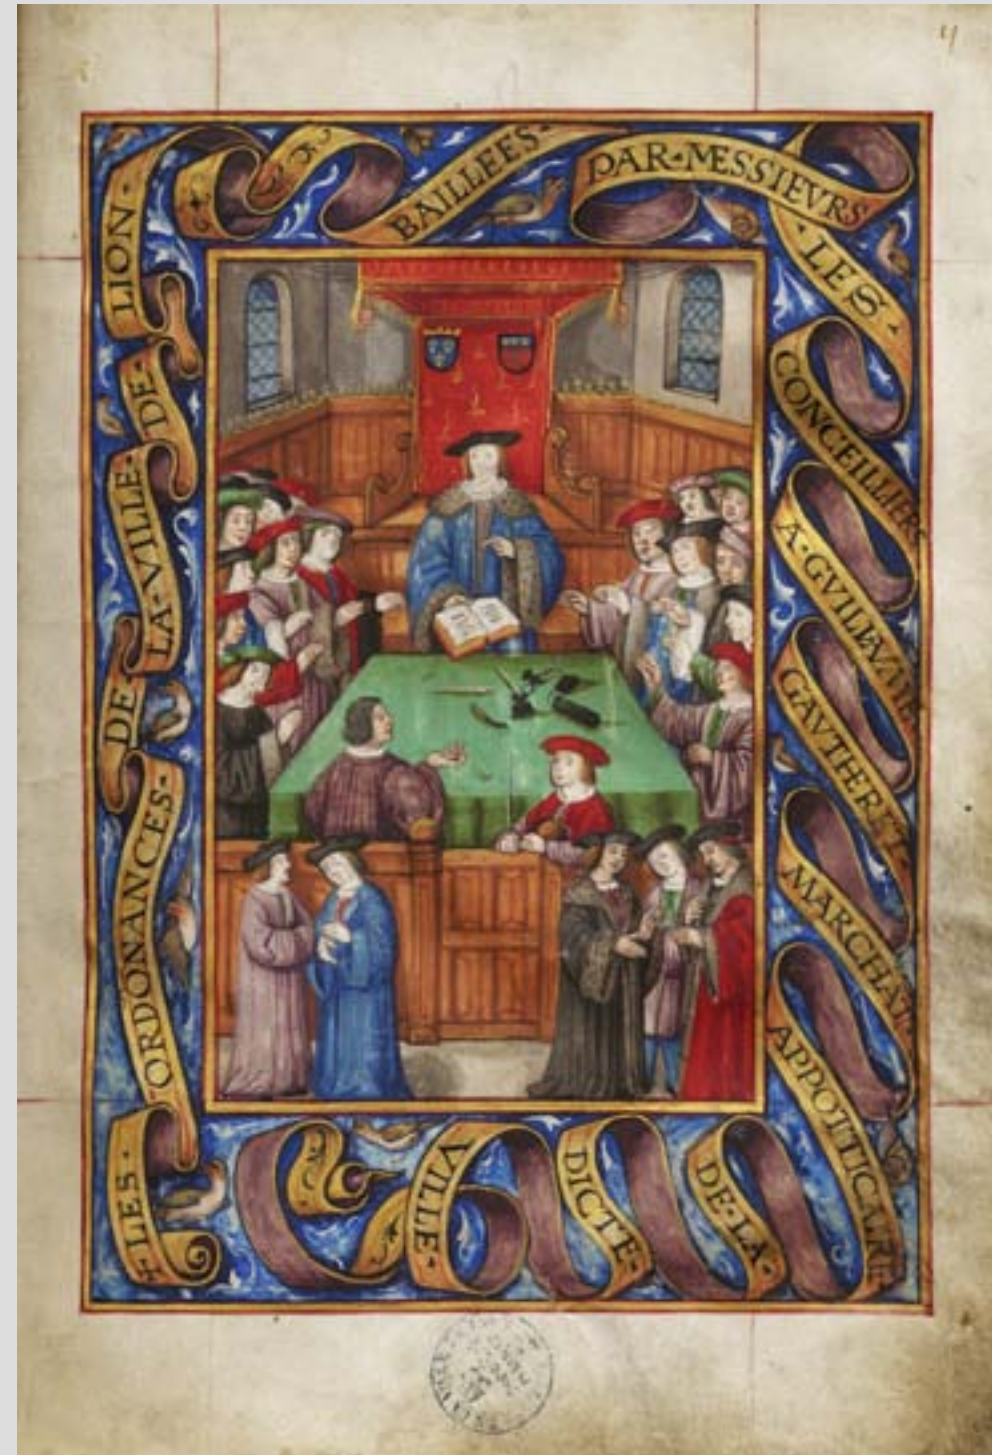 LES·
ORDONANCES·
DE
LA·VILLE·
DE·
LION·
BAILLEES·
PAR·MESSIEVRS
LES·
CONCEILLIERS
A·
GAVTHERET
MARCHAT
APPOTTICAIRE
DE·LA·
DICTE·
VILLE